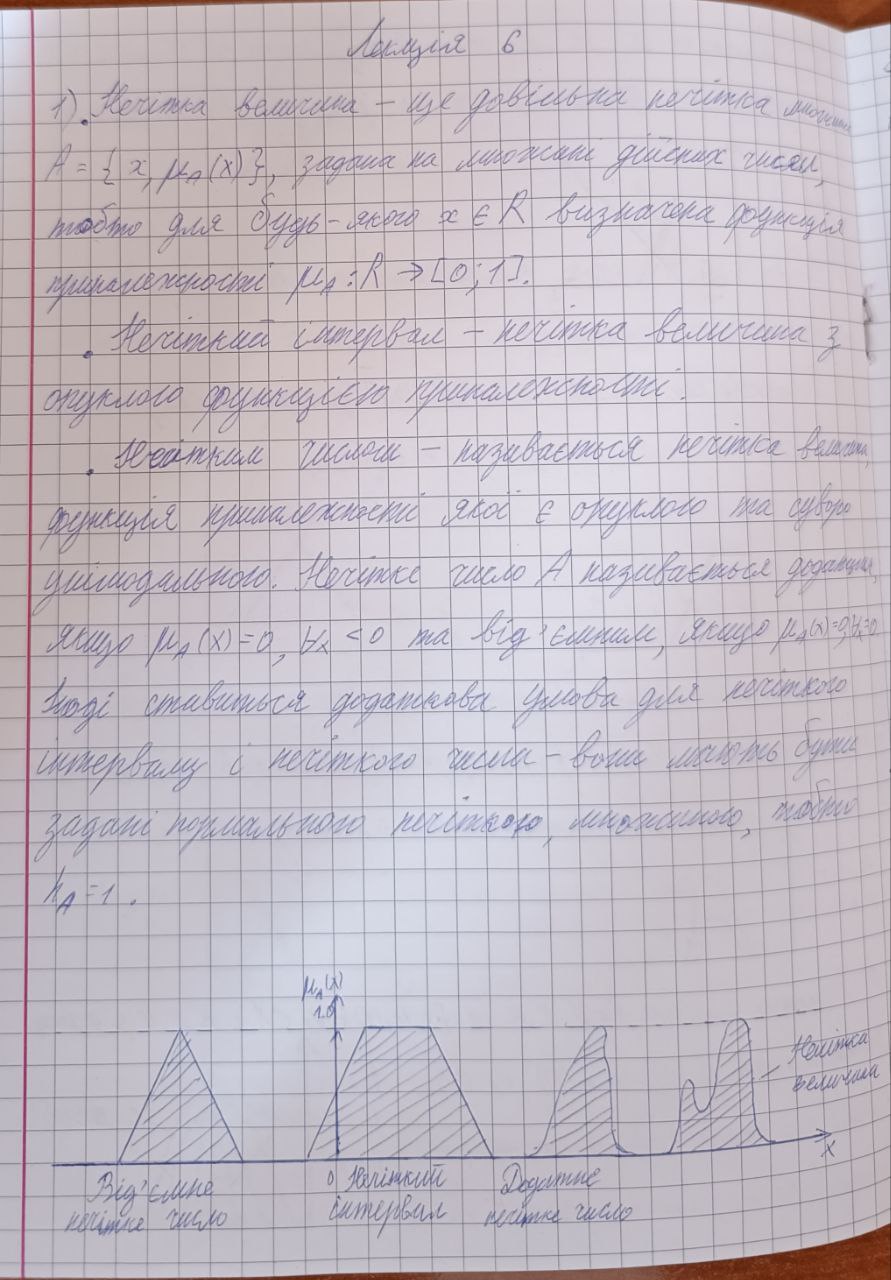 Лекція 6
1). Нечітка величина – це довільна нечітка множина
A = { x, μA(x)}, задана на множині дійсних чисел,
тобто для будь-якого x є R визначена функція
приналежності μA : R → [0; 1].
. Нечіткий інтервал – нечітка величина з
опуклою функцією приналежності.
. Нечітким числом – називається нечітка величина,
функція приналежності якої є опуклою та суворо
унімодальною. Нечітке число A називається додатним,
якщо μA(x)=0, ∀x <0 та від'ємним, якщо μA(x)=0,∀x>0
Іноді ставиться додаткова умова для нечіткого
інтервалу і нечіткого числа – вони мають бути
задані нормальною нечіткою, множиною, тобто
hA =1 .
μA(x)
1.0
Нечітка
величина
0
x
Від'ємне
нечітке число
Нечіткий
інтервал
Додатне
нечітке число